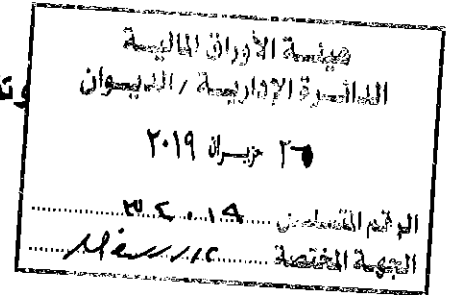 هيئة الأوراق المالية
الدائرة الإدارية / الديوان
٢٦ حزيران ٢٠١٩
الرقم المتسلسل
الجهة المختصة